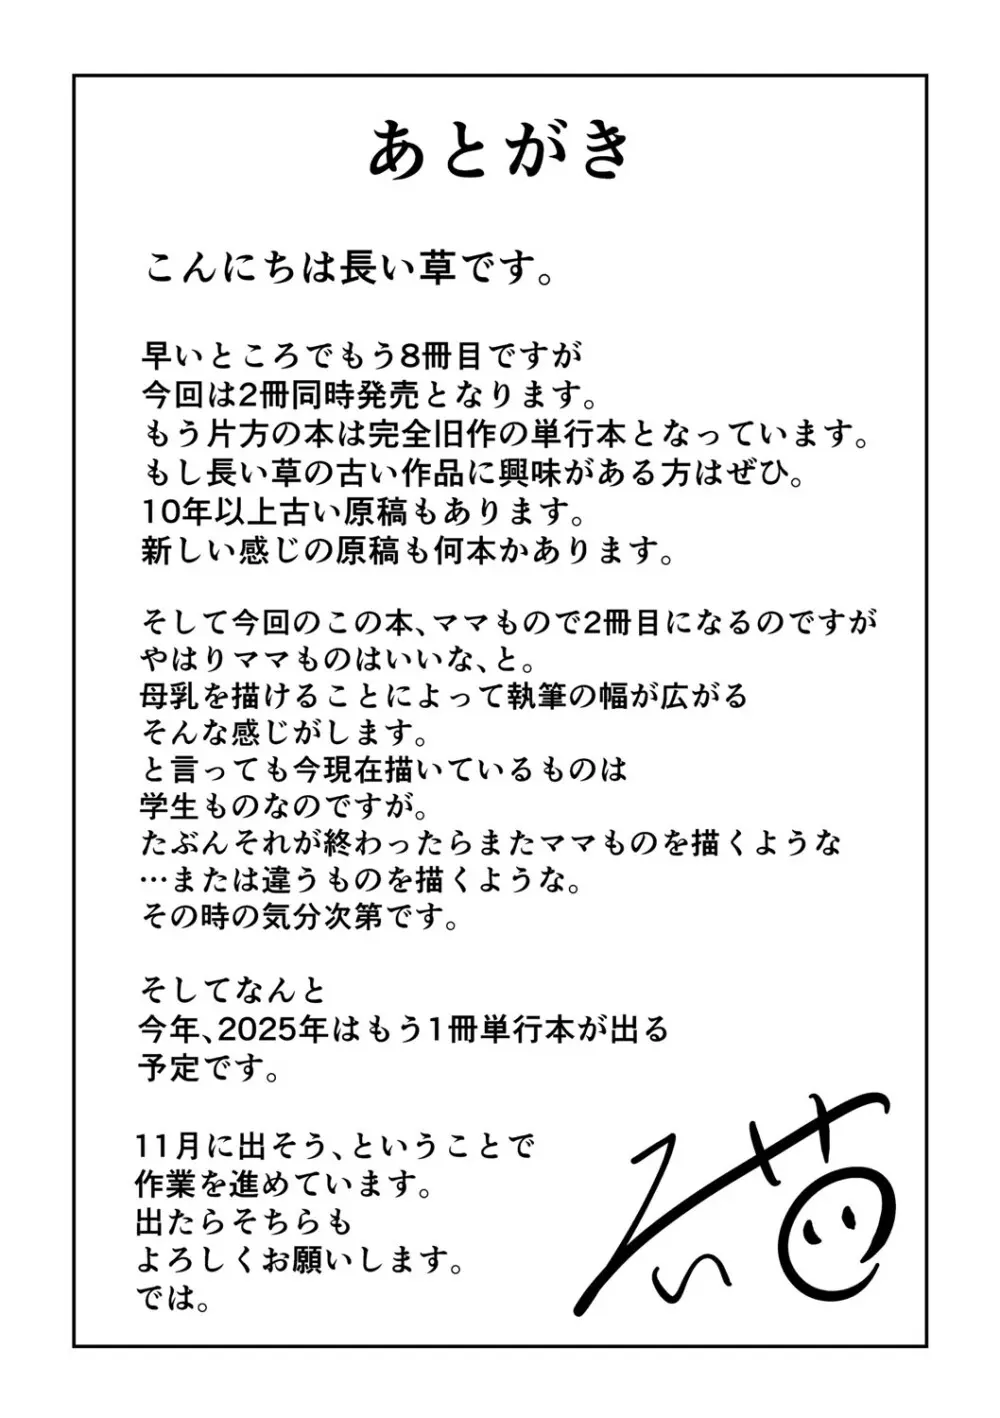 あとがき
こんにちは長い草です。
早いところでもう8冊目ですが
今回は2冊同時発売となります。
もう片方の本は完全旧作の単行本となっています。
もし長い草の古い作品に興味がある方はぜひ。
10年以上古い原稿もあります。
新しい感じの原稿も何本かあります。
そして今回のこの本、ママもので2冊目になるのですが
やはりママものはいいな、と。
母乳を描けることによって執筆の幅が広がる
そんな感じがします。
と言っても今現在描いているものは
学生ものなのですが。
たぶんそれが終わったらまたママものを描くような
…または違うものを描くような。
その時の気分次第です。
そしてなんと
今年、2025年はもう1冊単行本が出る
予定です。
11月に出そう、ということで
作業を進めています。
出たらそちらも
よろしくお願いします。
では。